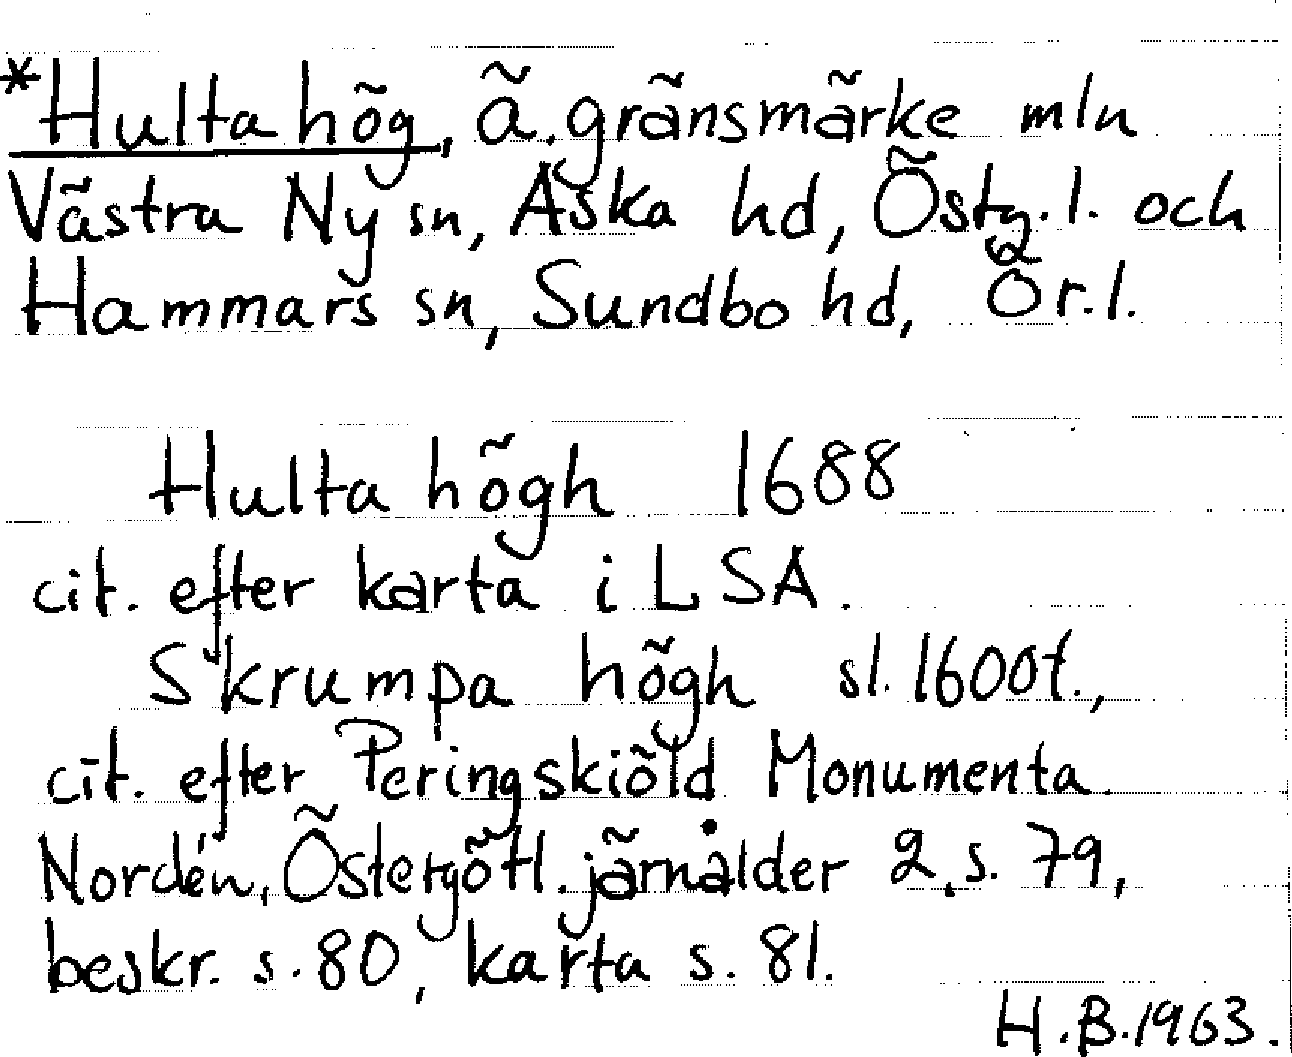 *Hulta hög, ä. gränsmärke mln
Västra Ny sn, Aska hd, Östg.l. och
Hammars sn, Sundbo hd, Ör.l.
Hulta högh 1688
cit. efter karta i LSA.
Skrumpa högh sl. 1600t.,
cit. efter Peringskiöld Monumenta.
Nordén, Östergötl. järnålder 2, s. 79,
beskr. s. 80, karta s. 81.
H.B. 1963.